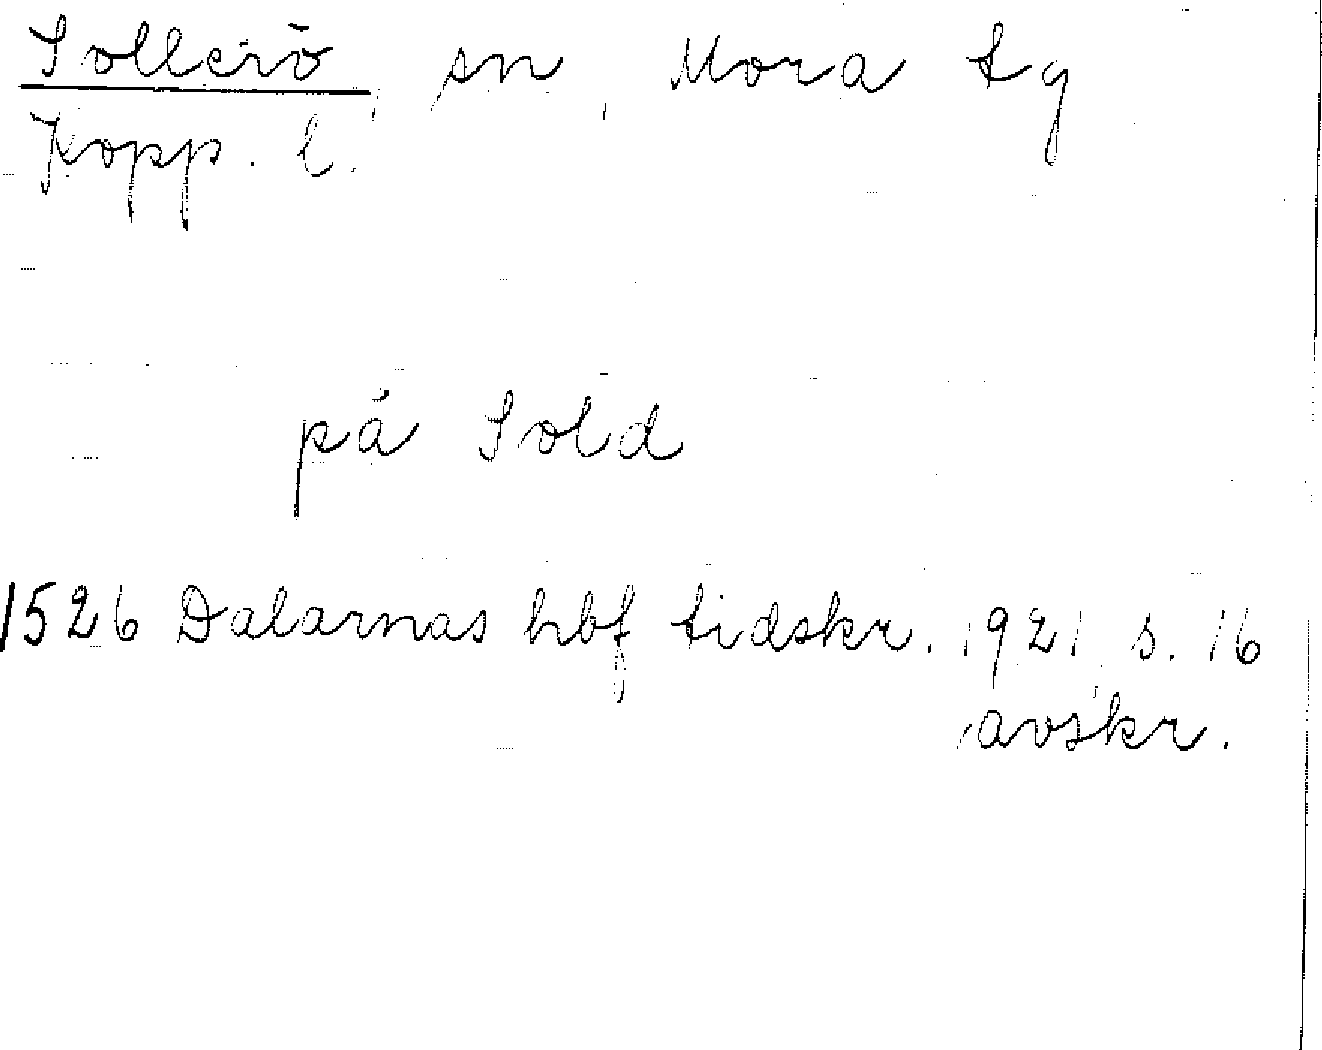 Sollerö, sn, Mora tg
Kopp. l.
på Sold
1526 Dalarnas hbf tidskr. 1921 s. 16
avskr.